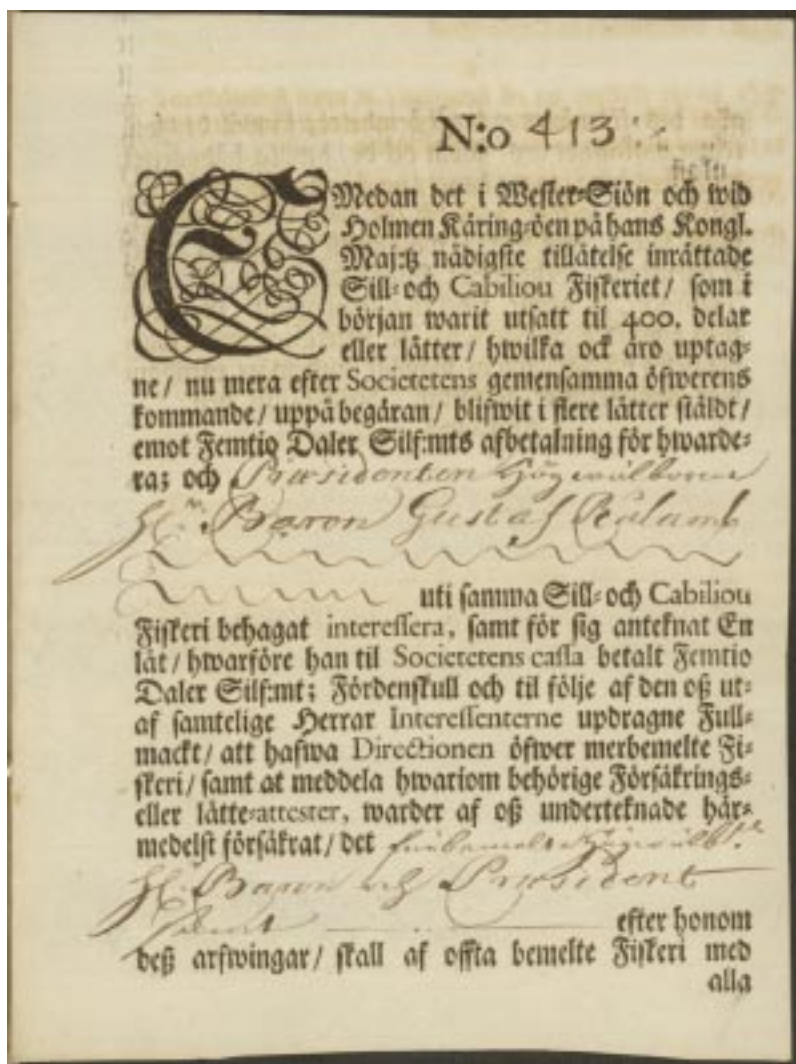 N:o 413
EMedan det i Wester-Siön och wid
Holmen Käring-öen på hans Kongl.
Maj:tz nådigste tillåtelse inrättade
Sill- och Cabiliou Fiskeriet/ som i
början warit utsatt til 400. delar
eller låtter/ hwilka ock äro uptag-
ne/ nu mera efter Societetens gemensamma öfwerens
kommande/ uppå begäran/ blifwit i flere låtter stäldt/
emot Femtio Daler Silf:mts afbetalning för hwarde-
ra; och Præsidenten Högwälborne
H:r Baron Gustaf Rålamb
uti samma Sill- och Cabiliou
Fiskeri behagat interessera, samt för sig anteknat En
låt/ hwarföre han til Societetens cassa betalt Femtio
Daler Silf:mt; Fördenskull och til följe af den oß ut-
af samtelige Herrar Interessenterne updragne Full-
mackt/ att hafwa Directionen öfwer merbemelte Fi-
skeri/ samt at meddela hwariom behörige Försäkrings-
eller låtte-attester, warder af oß underteknade här-
medelst försäkrat/ det
H:r Baron och Præsident
efter honom
deß arfwingar/ skall af offta bemelte Fiskeri med
alla